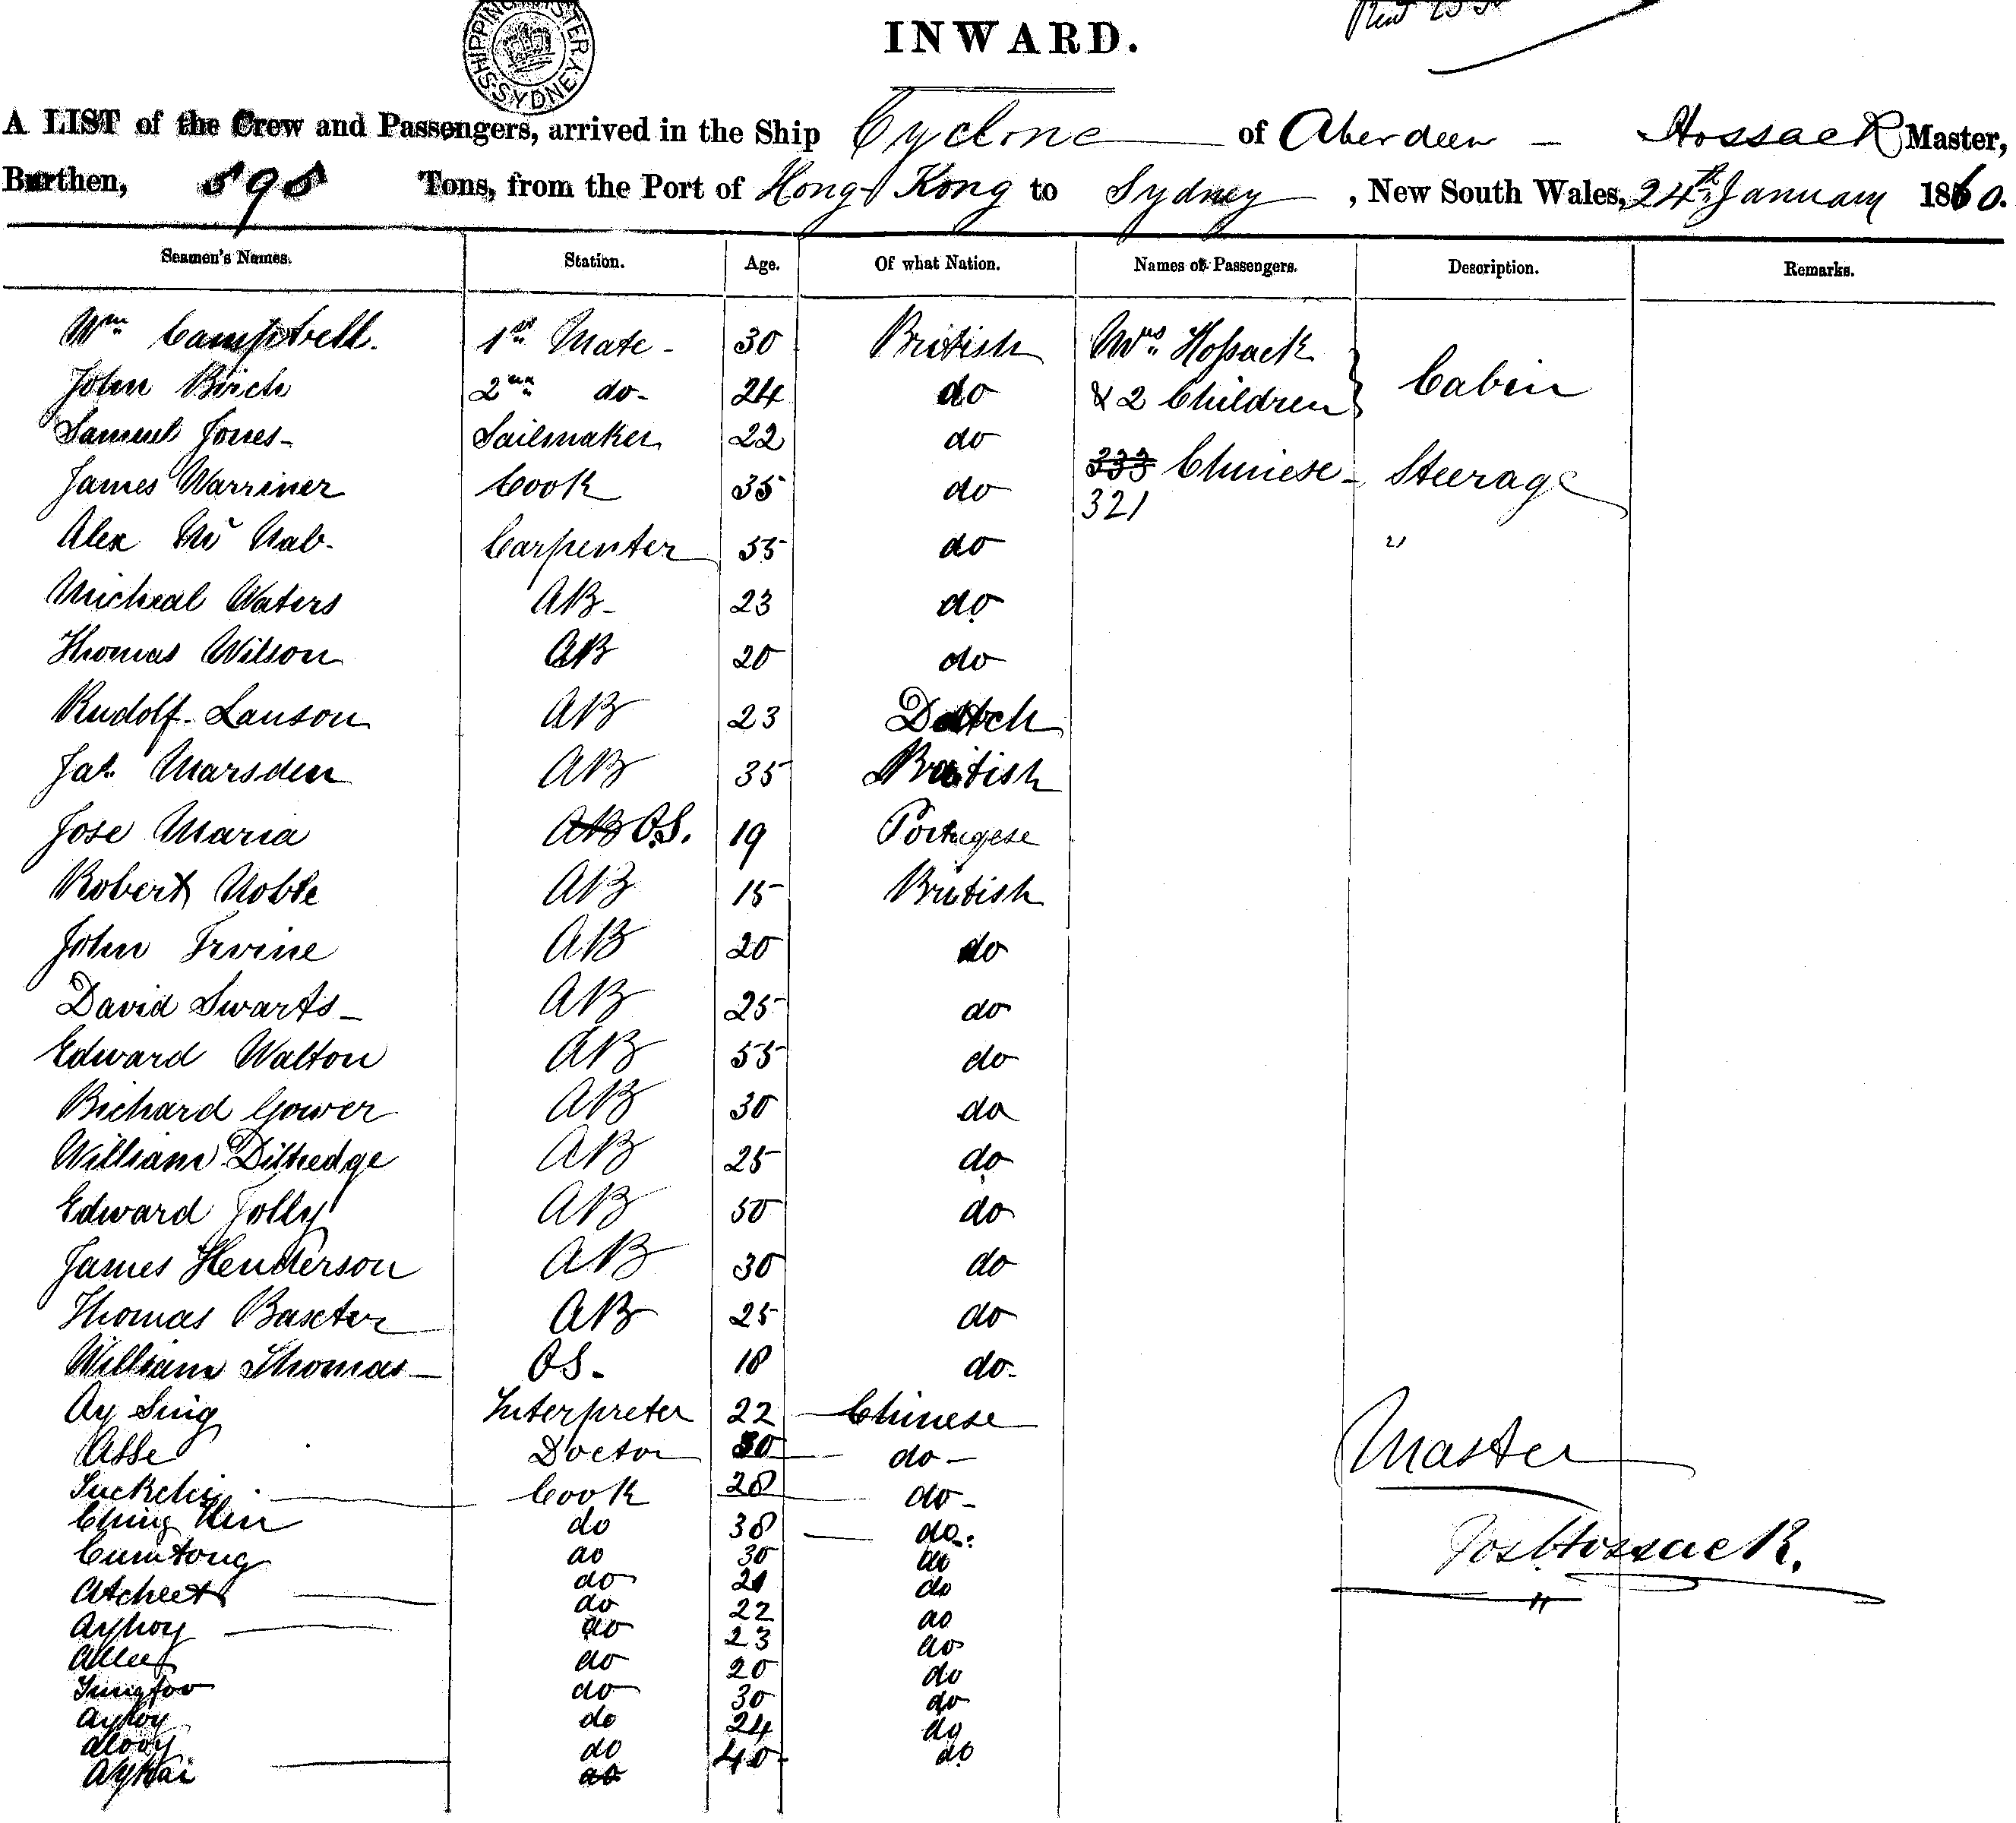 SHIPPING MASTER SYDNEY
INWARD.
A LIST of the Crew and Passengers, arrived in the Ship Cyclone of Aberdeen - Hossack Master,
Burthen, 598 Tons, from the Port of Hong Kong to Sydney, New South Wales, 24th January 1860.
Seamen's Names. Station. Age. Of what Nation. Names of Passengers. Description. Remarks.
Wm Campbell. 1st Mate - 30 British Mrs Hossack
John Birch 2nd do - 24 do & 2 Children Cabin
Samuel Jones - Sailmaker 22 do
James Warriner Cook 35 do 333 Chinese - Steerage
321
Alex Mc Nab. Carpenter 55 do "
Micheal Waters AB - 23 do
Thomas Wilson AB 20 do
Rudolf Lauson AB 23 Dutch
Jas. Marsden AB 35 British
Jose Maria AB O.S. 19 Portugese
Robert Noble AB 15 British
John Irvine AB 20 do
David Swarts - AB 25 do
Edward Walton AB 55 do
Richard Gower AB 30 do
William AB 25 do
Edward Jolly AB 50 do
James Henderson AB 30 do
Thomas Baxter AB 25 do
William Thomas - OS - 18 do -
Ay Sing Interpreter 22 - Chinese
Asse Doctor 30 do -
Cook 28 do -
Ching Hin do 38 do
Cumtong do 30 do
Atcheet do 21 do
Ayhoy do 22 do
Allee do 23 do
Tungfoo do 20 do
Ayhoy do 30 do
Alooy do 24 do
Aykai do 40 do
do
Master
Jos Hossack.
"